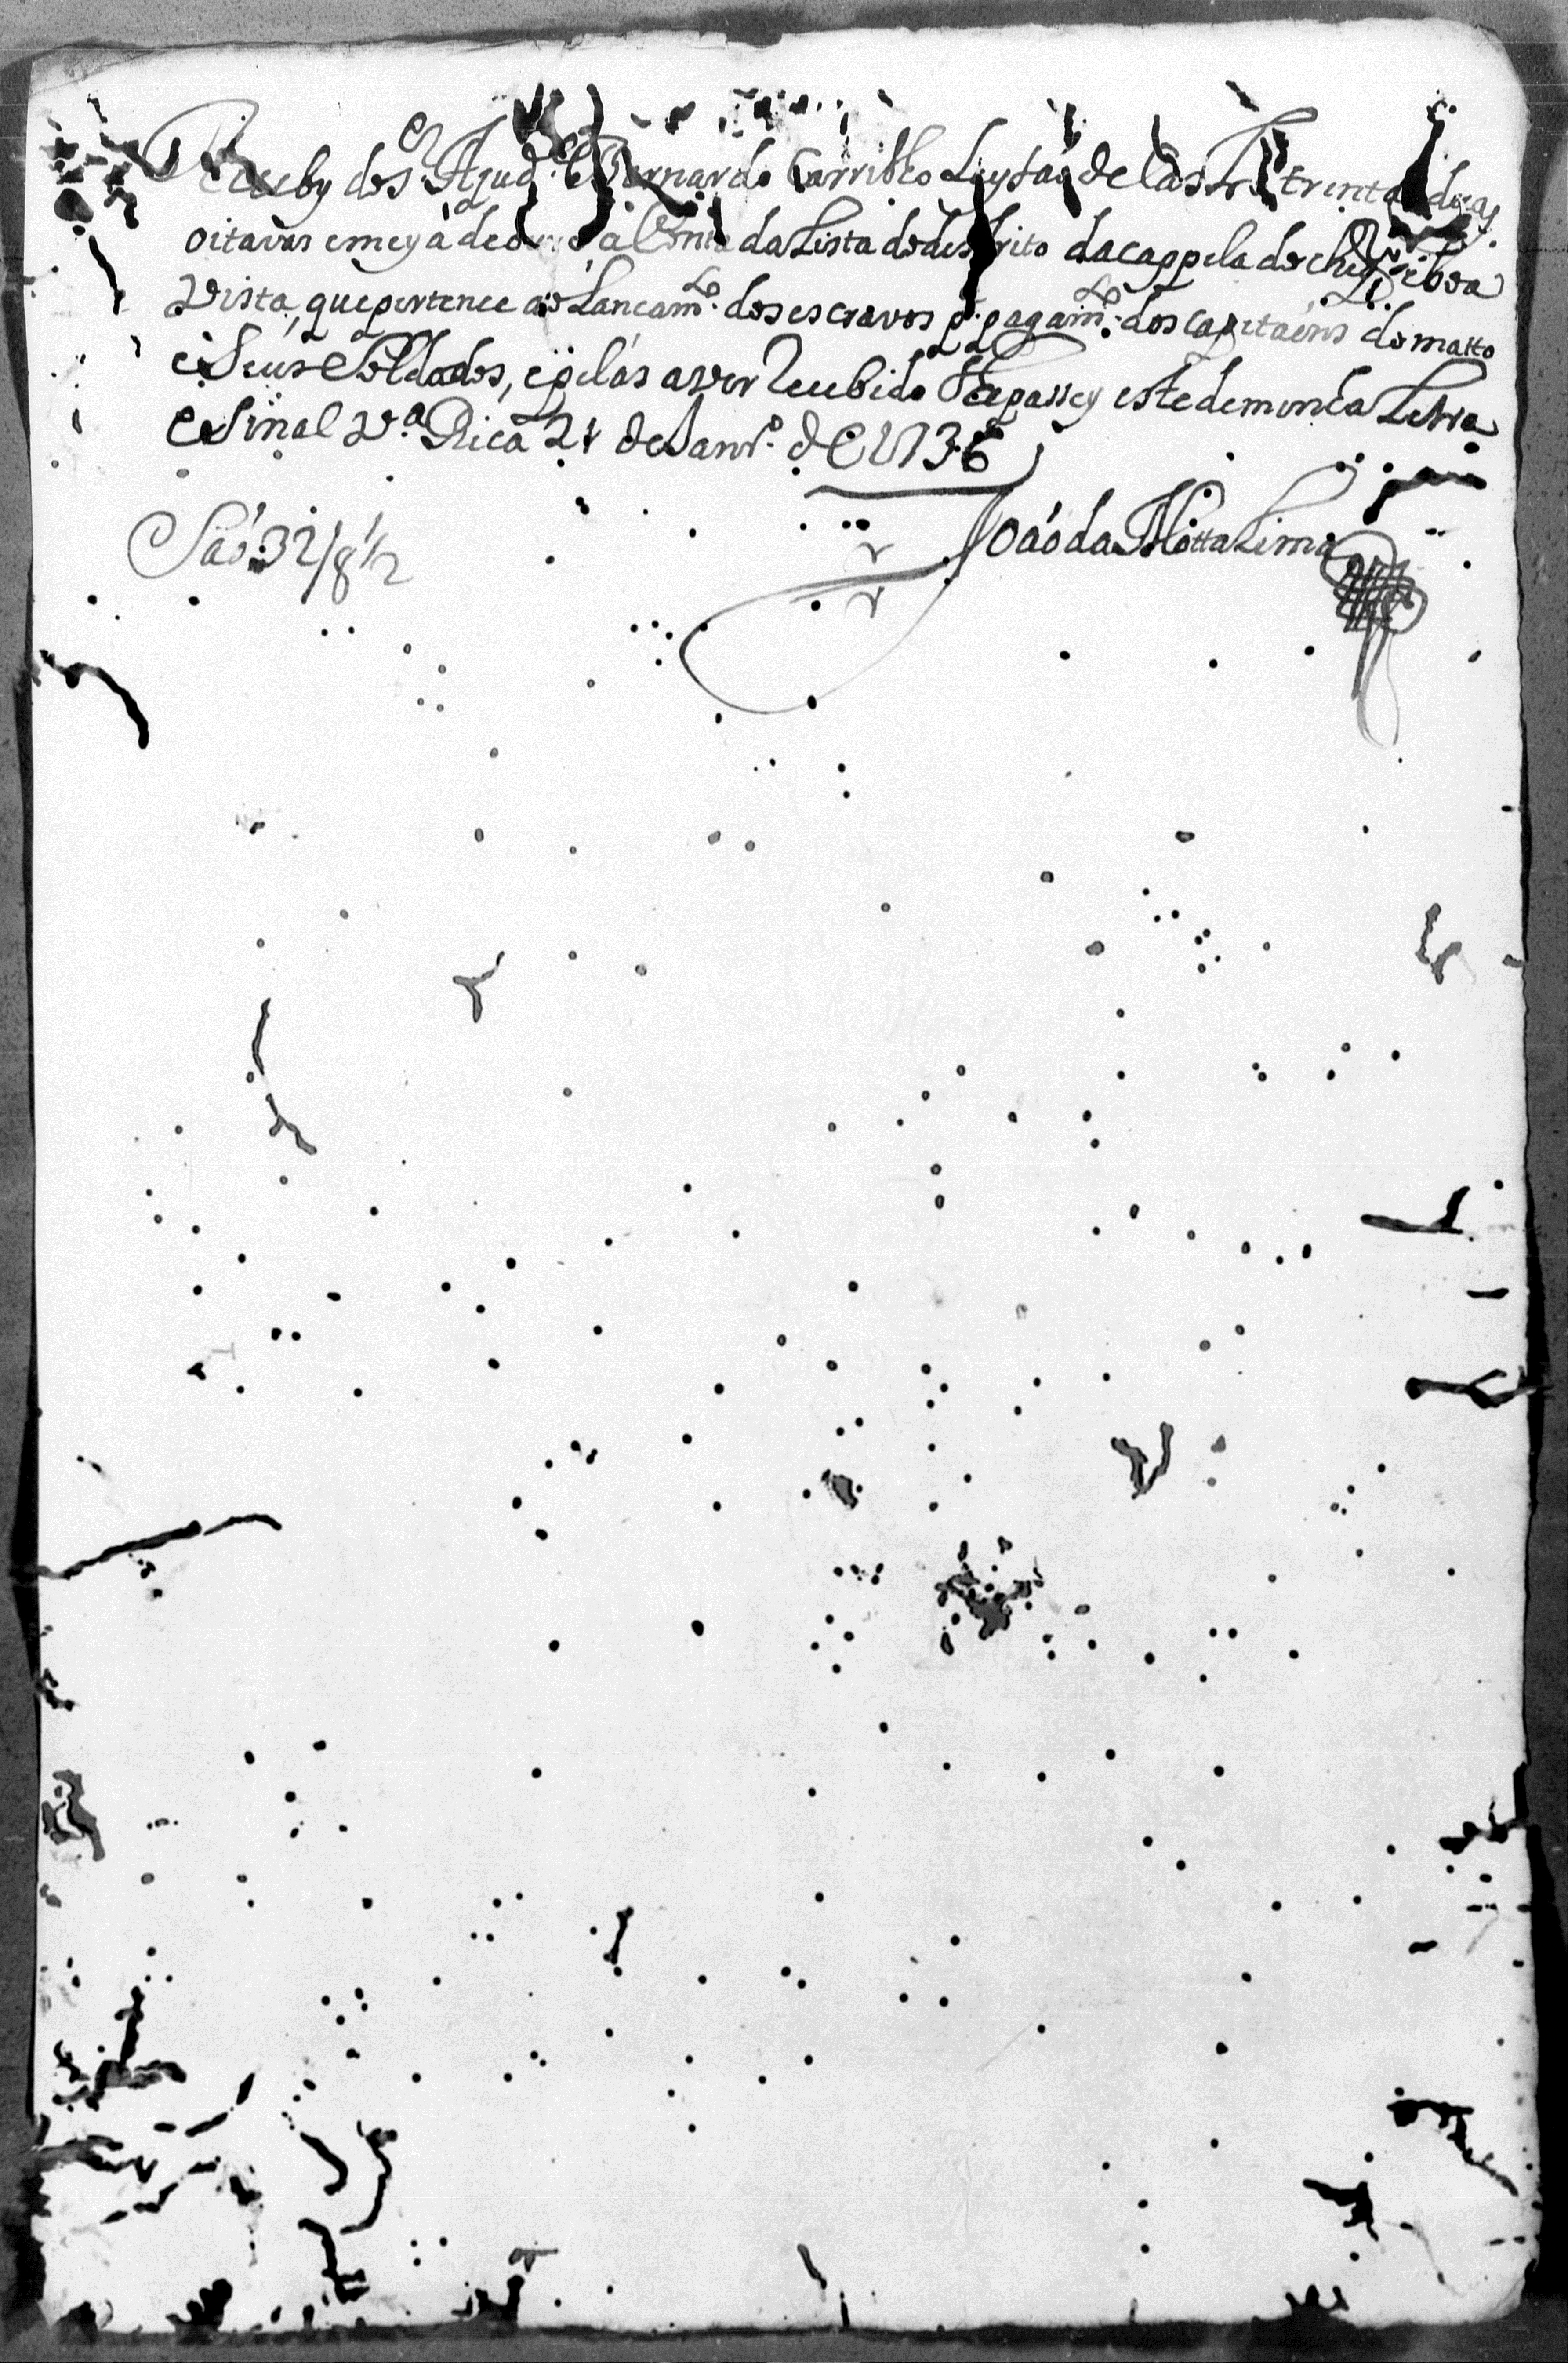 Receby do Sr. Ajud.e Bernardo Carrilho Leytaõ de Castro trinta e duas
oitavas e meya de ouro à Conta da Lista do destrito da cappela do e boa
Vista, que pertence ao Lancam.to dos escravos p.a pagam.to dos capitaéns do matto
e Seus Soldados, e pelas aver Recebido lhe passey este de minha Letra
e Sinal V.a Rica 21 de Janr.o de 1736
Joaó da Motta Lima
Saó 32/8 1/2